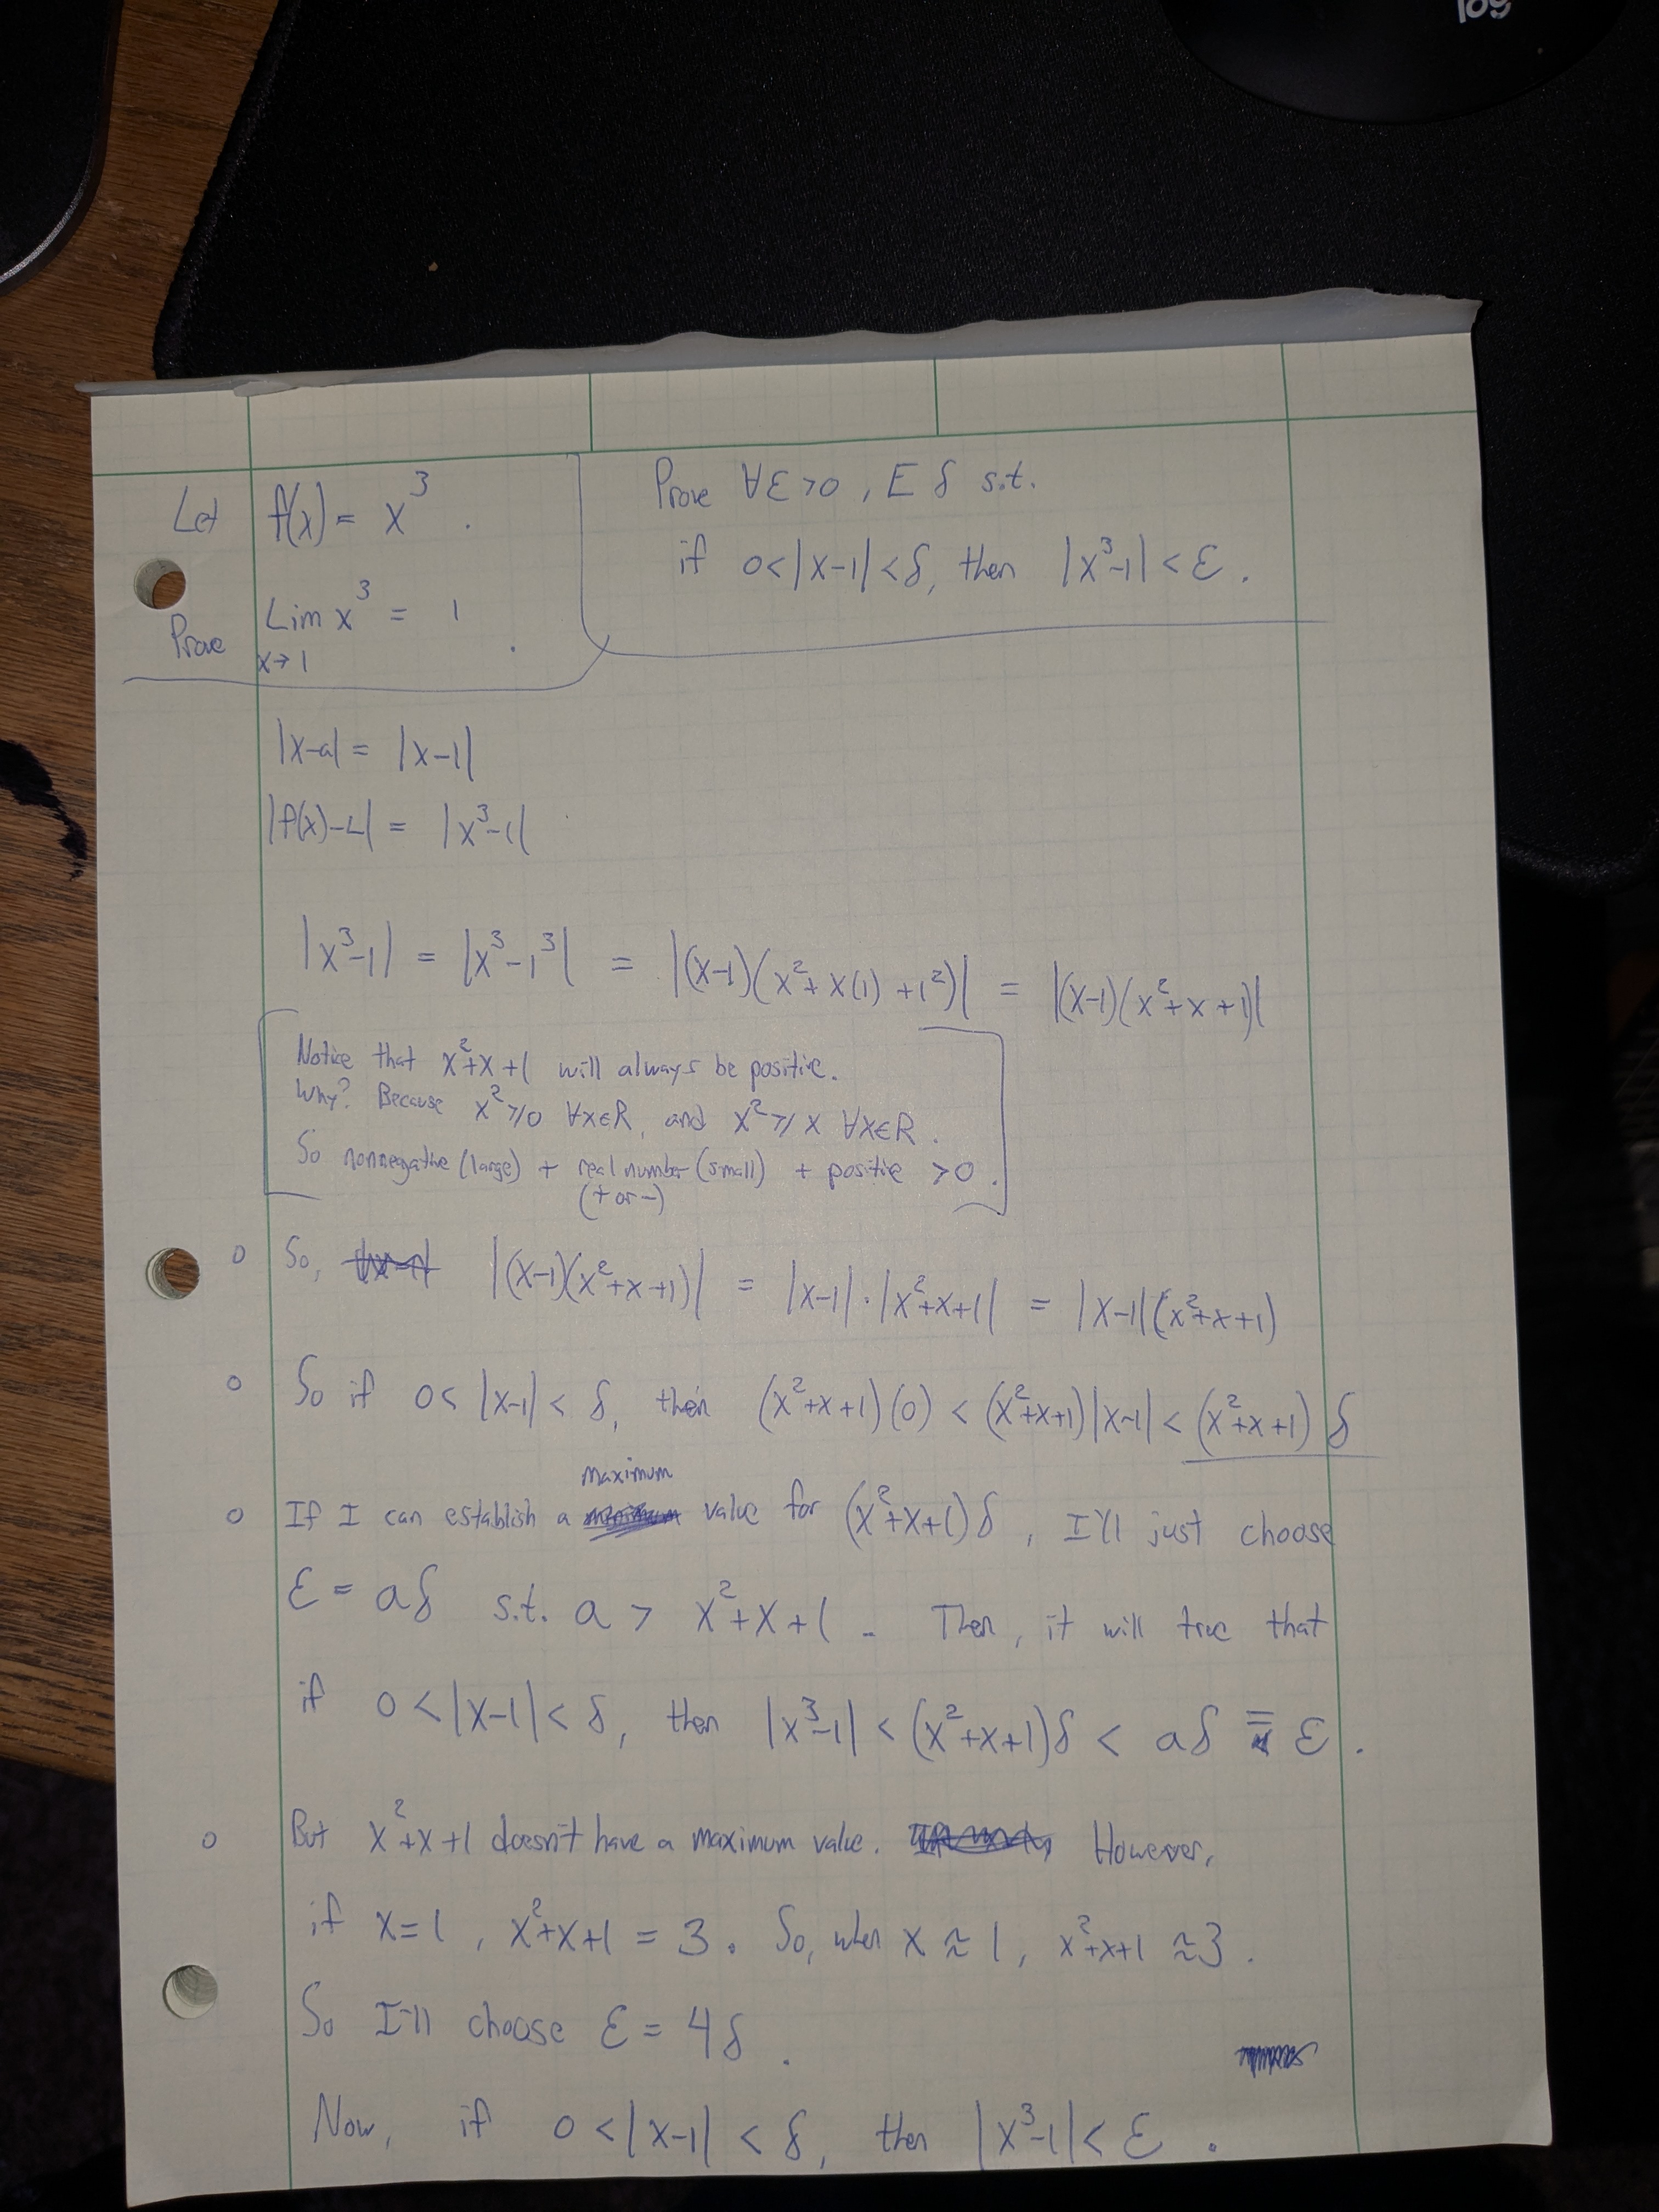 Let f(x) = x³ .
Prove Lim x³ = 1 .
x→1
Prove ∀ε>0, E δ s.t.
if 0<|x-1|<δ, then |x³-1|<ε.
|x-a| = |x-1|
|f(x)-L| = |x³-1|
|x³-1| = |x³-1³| = |(x-1)(x²+x(1)+1²)| = |(x-1)(x²+x+1)|
Notice that x²+x+1 will always be positive.
Why? Because x²⩾0 ∀x∈R, and x²⩾x ∀x∈R.
So nonnegative (large) + real number (small) + positive >0.
(+ or -)
o So, |(x-1)(x²+x+1)| = |x-1|·|x²+x+1| = |x-1|(x²+x+1)
o So if 0<|x-1|<δ, then (x²+x+1)(0) < (x²+x+1)|x-1| < (x²+x+1)δ
o If I can establish a maximum value for (x²+x+1)δ, I'll just choose
ε = aδ s.t. a > x²+x+1. Then, it will true that
if 0<|x-1|<δ, then |x³-1|<(x²+x+1)δ < aδ = ε.
o But x²+x+1 doesn't have a maximum value. However,
if x=1, x²+x+1 = 3. So, when x≈1, x²+x+1 ≈3.
So I'll choose ε = 4δ.
Now, if 0<|x-1|<δ, then |x³-1|<ε.